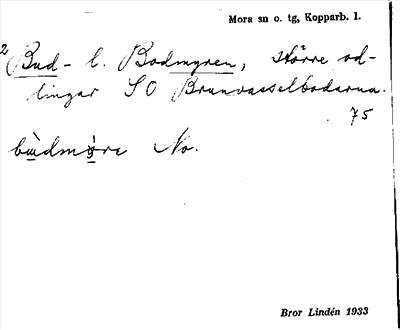 Mora sn o. tg, Kopparb. l.
2 Bud- l. Bodmyren, större od-
lingar SO Brunvasselbodarna.
75
bùdmỳre No.
Bror Lindén 1933